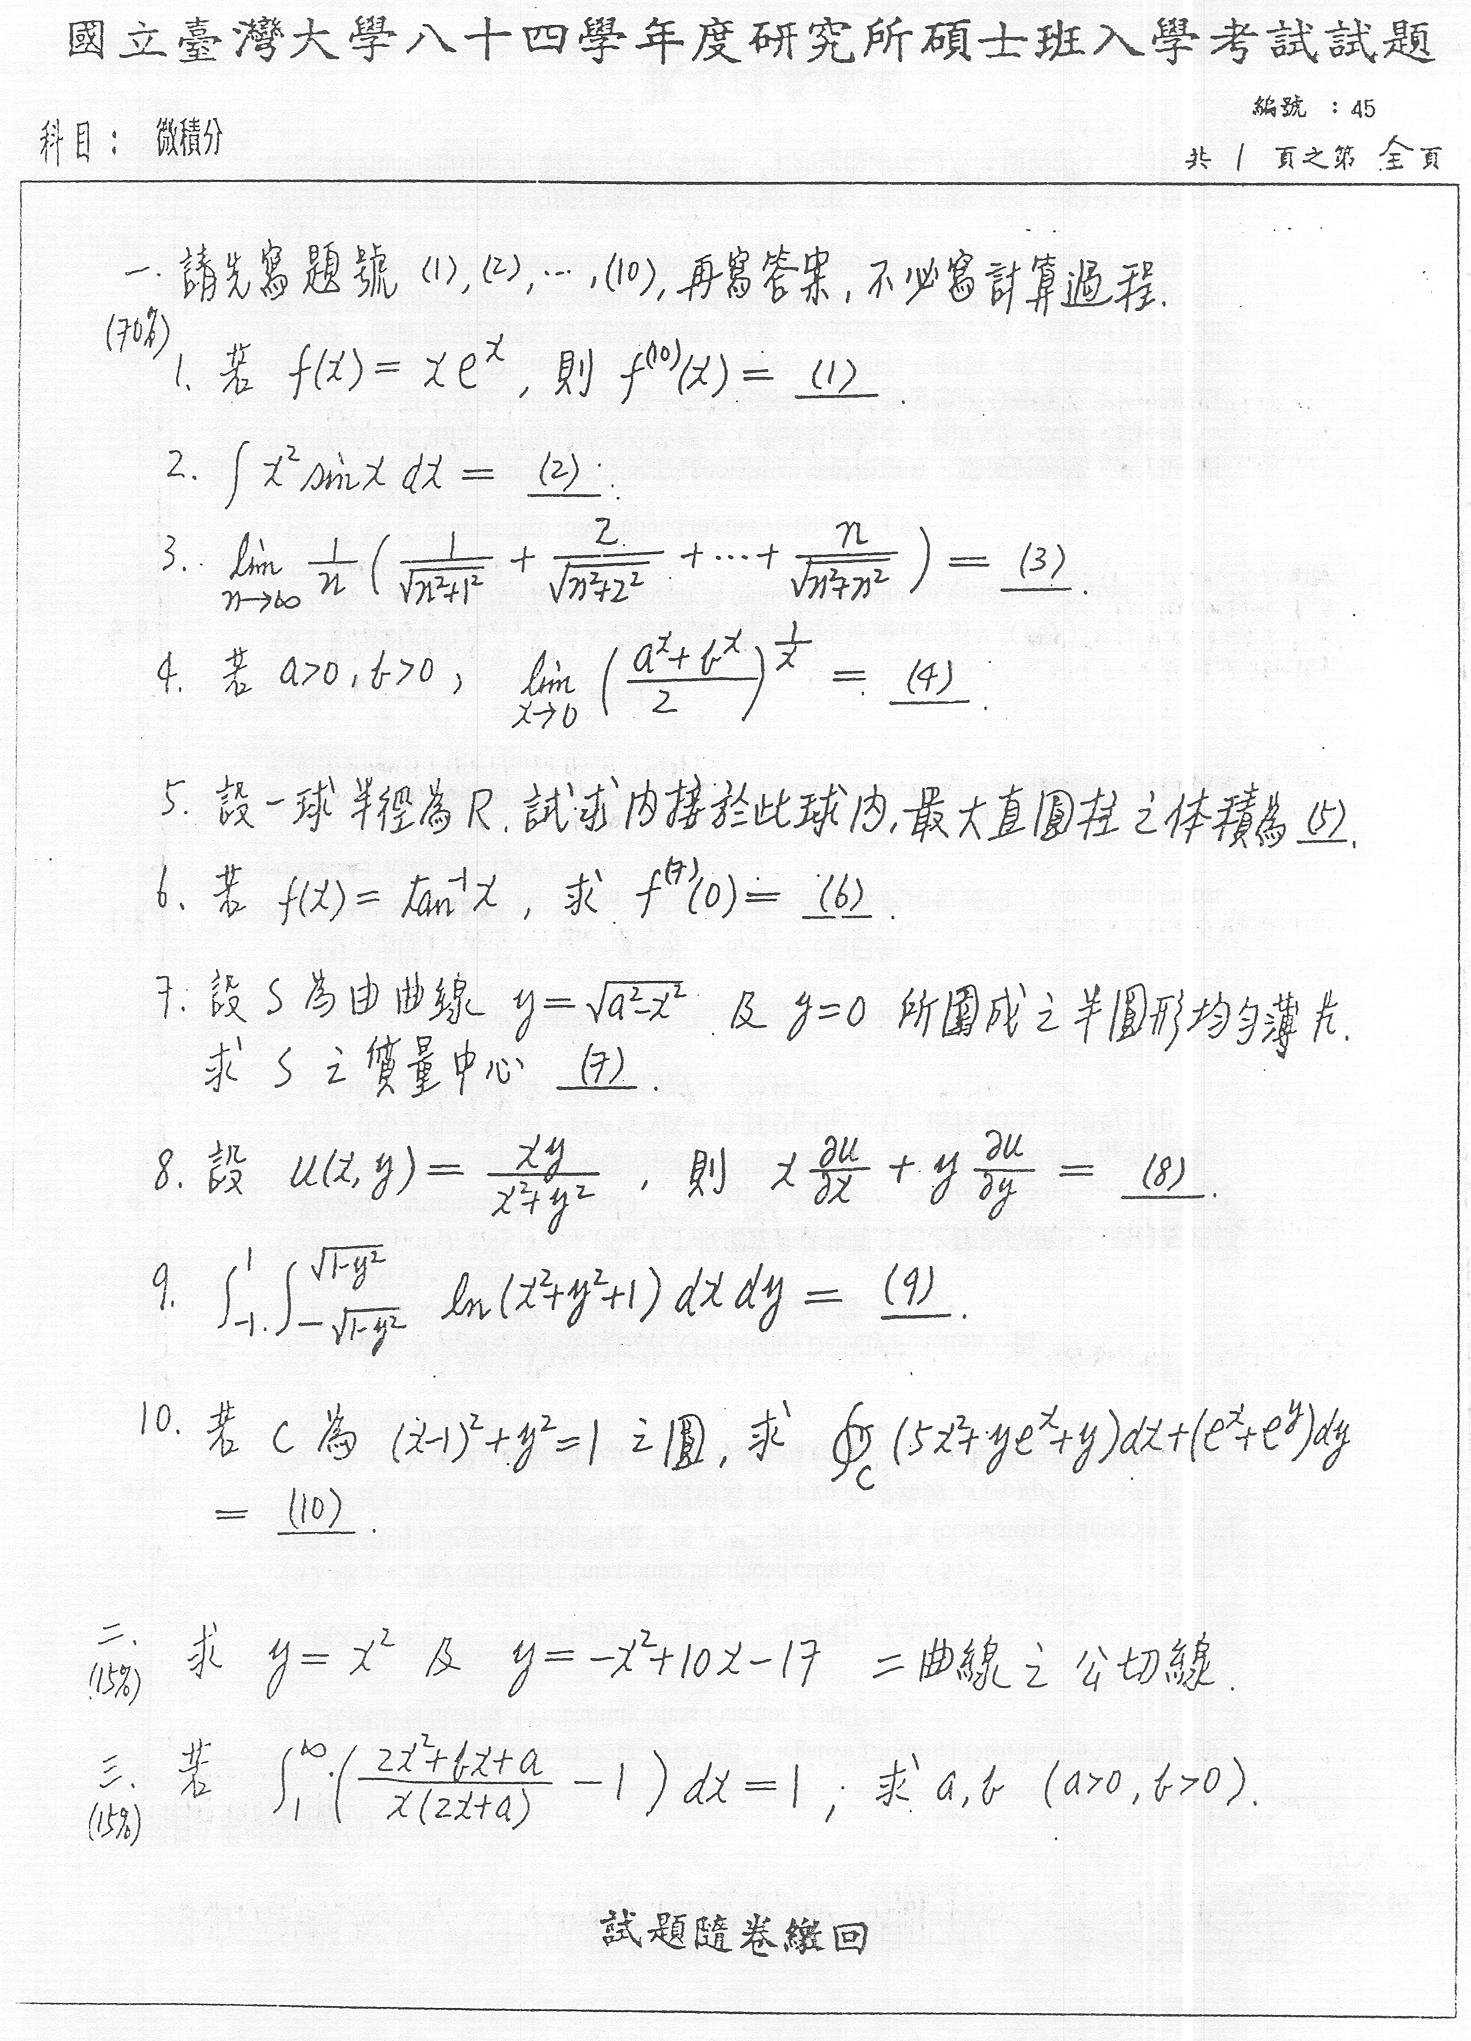 國立臺灣大學八十四學年度研究所碩士班入學考試試題
編號：45
科目：微積分
共 1 頁之第 全頁
一. 請先寫題號 (1), (2), …, (10), 再寫答案, 不必寫計算過程.
(70%)
1. 若 f(x) = x e^x , 則 f^(10)(x) = (1) .
2. ∫ x² sin x dx = (2) .
3. lim_{n→∞} 1/n ( 1/√(n²+1²) + 2/√(n²+2²) + ⋯ + n/√(n²+n²) ) = (3) .
4. 若 a>0, b>0, lim_{x→0} ( (a^x + b^x)/2 )^{1/x} = (4) .
5. 設一球半徑為 R. 試求內接於此球內, 最大直圓柱之体積為 (5) .
6. 若 f(x) = tan⁻¹x , 求 f^(7)(0) = (6) .
7. 設 S 為由曲線 y = √(a²-x²) 及 y=0 所圍成之半圓形均勻薄片.
求 S 之質量中心 (7) .
8. 設 u(x,y) = xy/(x²+y²) , 則 x ∂u/∂x + y ∂u/∂y = (8) .
9. ∫_{-1}^{1} ∫_{-√(1-y²)}^{√(1-y²)} ln(x²+y²+1) dx dy = (9) .
10. 若 C 為 (x-1)²+y²=1 之圓, 求 ∮_C (5x²+ye^x+y)dx+(e^x+e^y)dy
= (10) .
二. 求 y = x² 及 y = -x²+10x-17 二曲線之公切線.
(15%)
三. 若 ∫_1^∞ ( (2x²+bx+a)/(x(2x+a)) - 1 ) dx = 1 ; 求 a, b (a>0, b>0).
(15%)
試題隨卷繳回